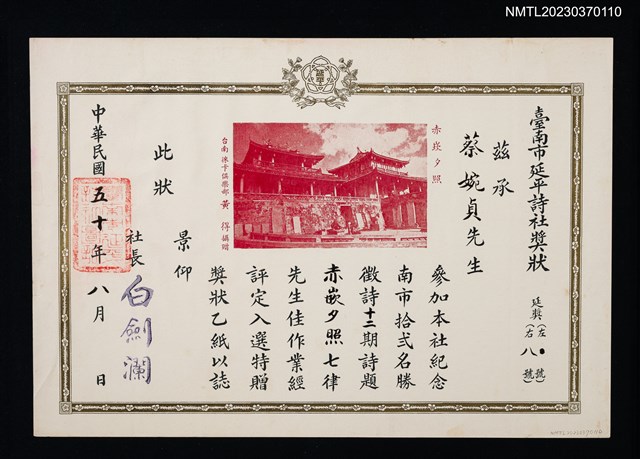 NMTL20230370110
延平
臺南市延平詩社獎狀
延獎(左 八〇 號)
(右 號)
茲承
蔡婉貞先生
參加本社紀念
南市拾貳名勝
徵詩十二期詩題
赤嵌夕照七律
先生佳作業經
評定入選特贈
獎狀乙紙以誌
景仰
此狀
赤崁夕照
台南 徠卡俱樂部 黃得 攝贈
社長 白劍瀾
中華民國五十年八月 日